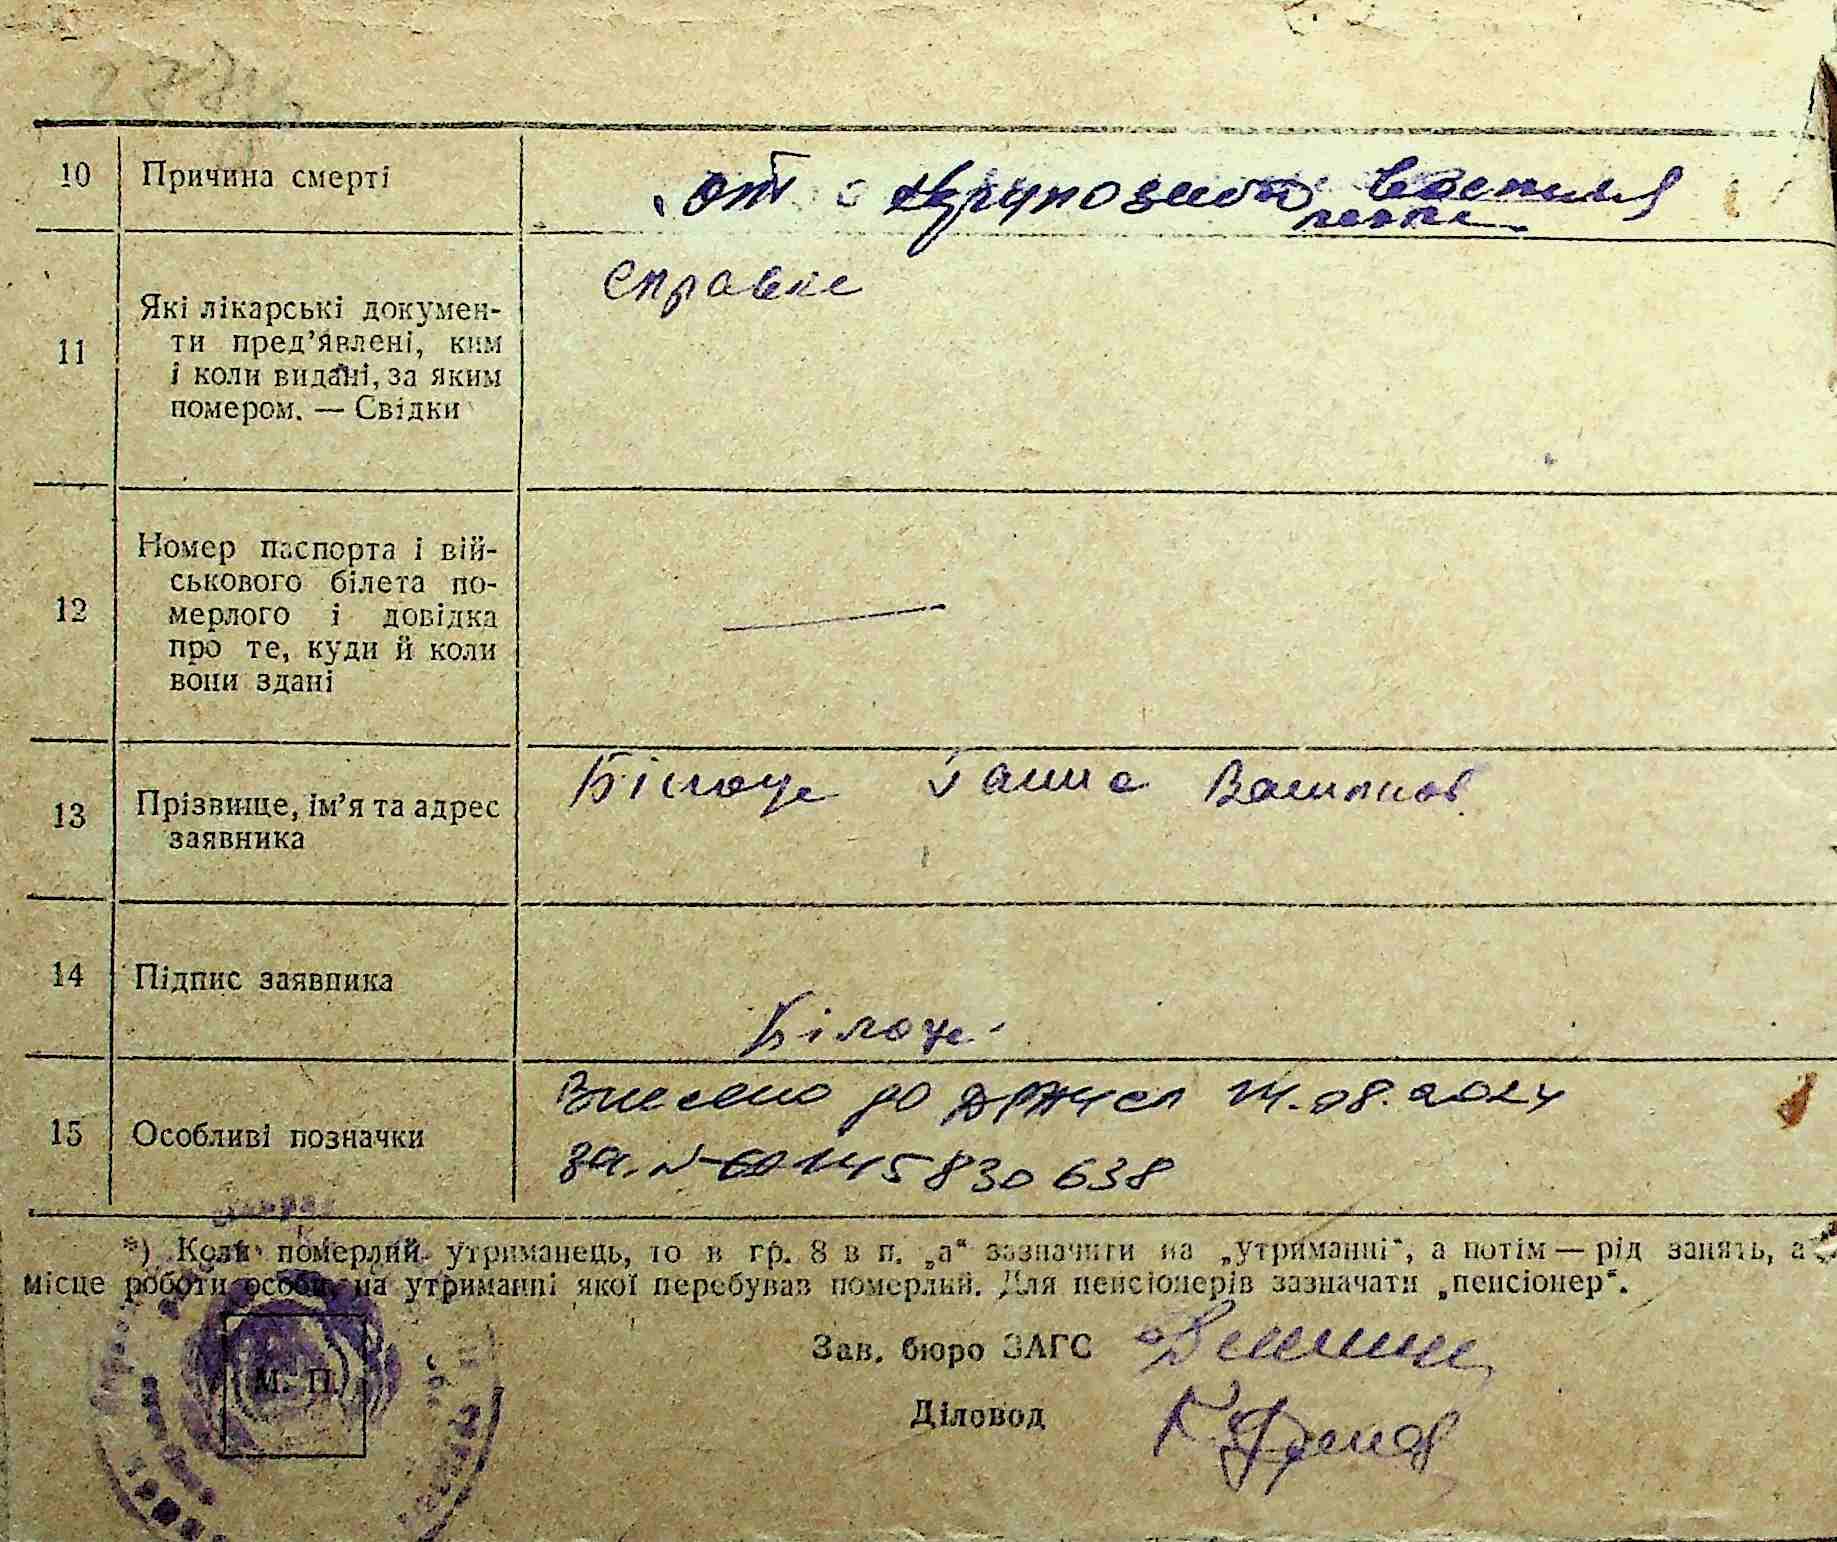 10 Причина смерті от крупозного воспал
легк
11 Які лікарські докумен-
ти пред'явлені, ким
і коли видані, за яким
помером. — Свідки
справке
12 Номер паспорта і вій-
ськового білета по-
мерлого і довідка
про те, куди й коли
вони здані
—
13 Прізвище, ім'я та адрес
заявника
Ганна
14 Підпис заявника
15 Особливі позначки
Внесено до ДРАЦСГ 14.08.2024
за №00145830638
*) Коли померлий утриманець, то в гр. 8 в п. „а“ зазначити на „утриманні“, а потім — рід занять, а
місце роботи особи, на утриманні якої перебував померлий. Для пенсіонерів зазначати „пенсіонер“.
Зав. бюро ЗАГС
Діловод
М. П.